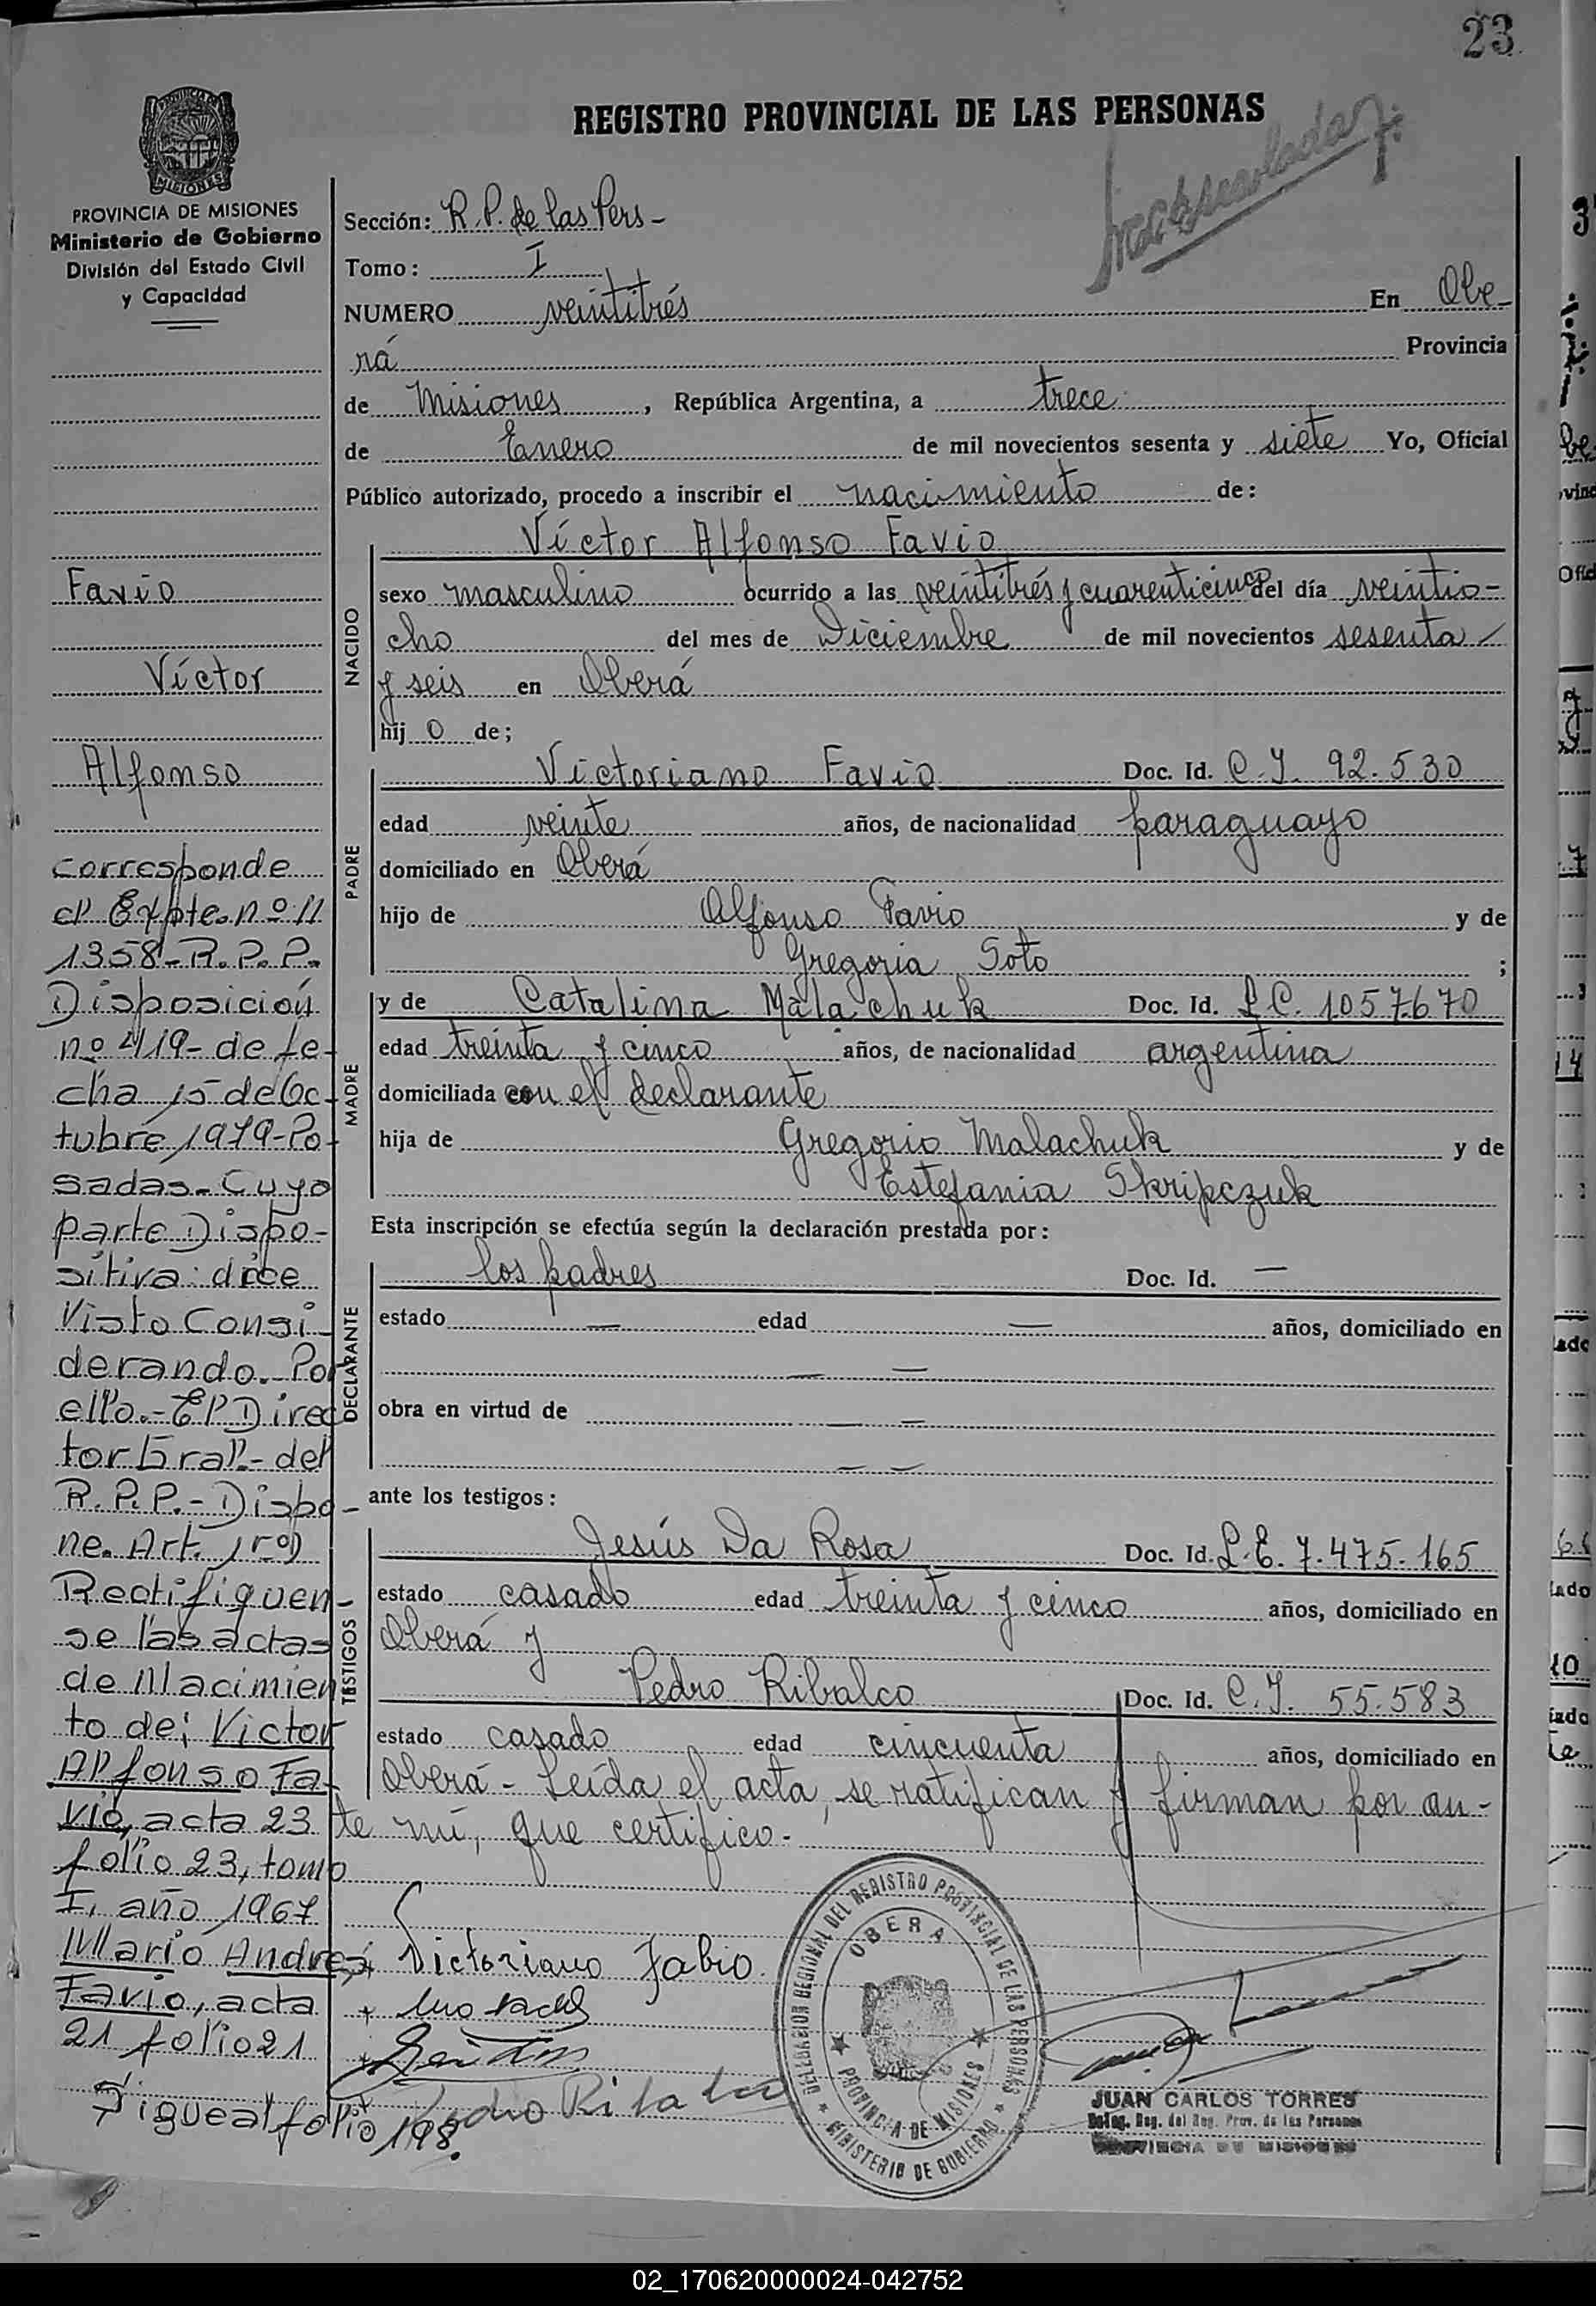 23
REGISTRO PROVINCIAL DE LAS PERSONAS
PROVINCIA DE MISIONES
Ministerio de Gobierno
División del Estado Civil
y Capacidad
Sección: R.P. de las Pers-
Tomo: I
NUMERO veintitrés En Obe-
rá Provincia
de Misiones, República Argentina, a trece
de Enero de mil novecientos sesenta y siete Yo, Oficial
Público autorizado, procedo a inscribir el nacimiento de:
NACIDO
Víctor Alfonso Favio
sexo masculino ocurrido a las veintitrés y cuarenticinco del día veintio-
cho del mes de Diciembre de mil novecientos sesenta
y seis en Oberá
hijo de;
PADRE
Victoriano Favio Doc. Id. C.I. 92.530
edad veinte años, de nacionalidad paraguayo
domiciliado en Oberá
hijo de Alfonso Favio y de
Gregoria Soto ;
MADRE
y de Catalina Malachuk Doc. Id. L.C. 1057.670
edad treinta y cinco años, de nacionalidad argentina
domiciliada con el declarante
hija de Gregorio Malachuk y de
Estefania Skripczuk
Esta inscripción se efectúa según la declaración prestada por:
DECLARANTE
los padres Doc. Id. —
estado — edad — años, domiciliado en
— —
obra en virtud de — —
— —
ante los testigos:
TESTIGOS
Jesús Da Rosa Doc. Id. L.E. 7.475.165
estado casado edad treinta y cinco años, domiciliado en
Oberá y
Pedro Ribalco Doc. Id. C.I. 55.583
estado casado edad cincuenta años, domiciliado en
Oberá - Leída el acta, se ratifican y firman por an-
te mí, que certifico.-
Victoriano Fabio
Pedro Ribalco
DELEGACION REGIONAL DEL REGISTRO PROVINCIAL DE LAS PERSONAS
OBERA
PROVINCIA DE MISIONES
MINISTERIO DE GOBIERNO
JUAN CARLOS TORRES
Deleg. Reg. del Reg. Prov. de las Personas
PROVINCIA DE MISIONES
Favio
Víctor
Alfonso
corresponde
al Expte. nº 11
1358-R.P.P.
Disposición
nº 419- de fe-
cha 15 de Oc-
tubre 1979-Po-
sadas- Cuyo
parte Dispo-
sitiva: dice
Visto Consi-
derando. Por
ello.- El Direc
tor Gral.- del
R.P.P.- Dispo-
ne. Art. 1rº)
Rectifiquen-
se las actas
de Nacimien
to de; Victor
Alfonso Fa-
vio, acta 23
folio 23, tomo
I, año 1967
Mario Andres
Favio, acta
21 folio 21
Sigue al folio 198.
02_170620000024-042752